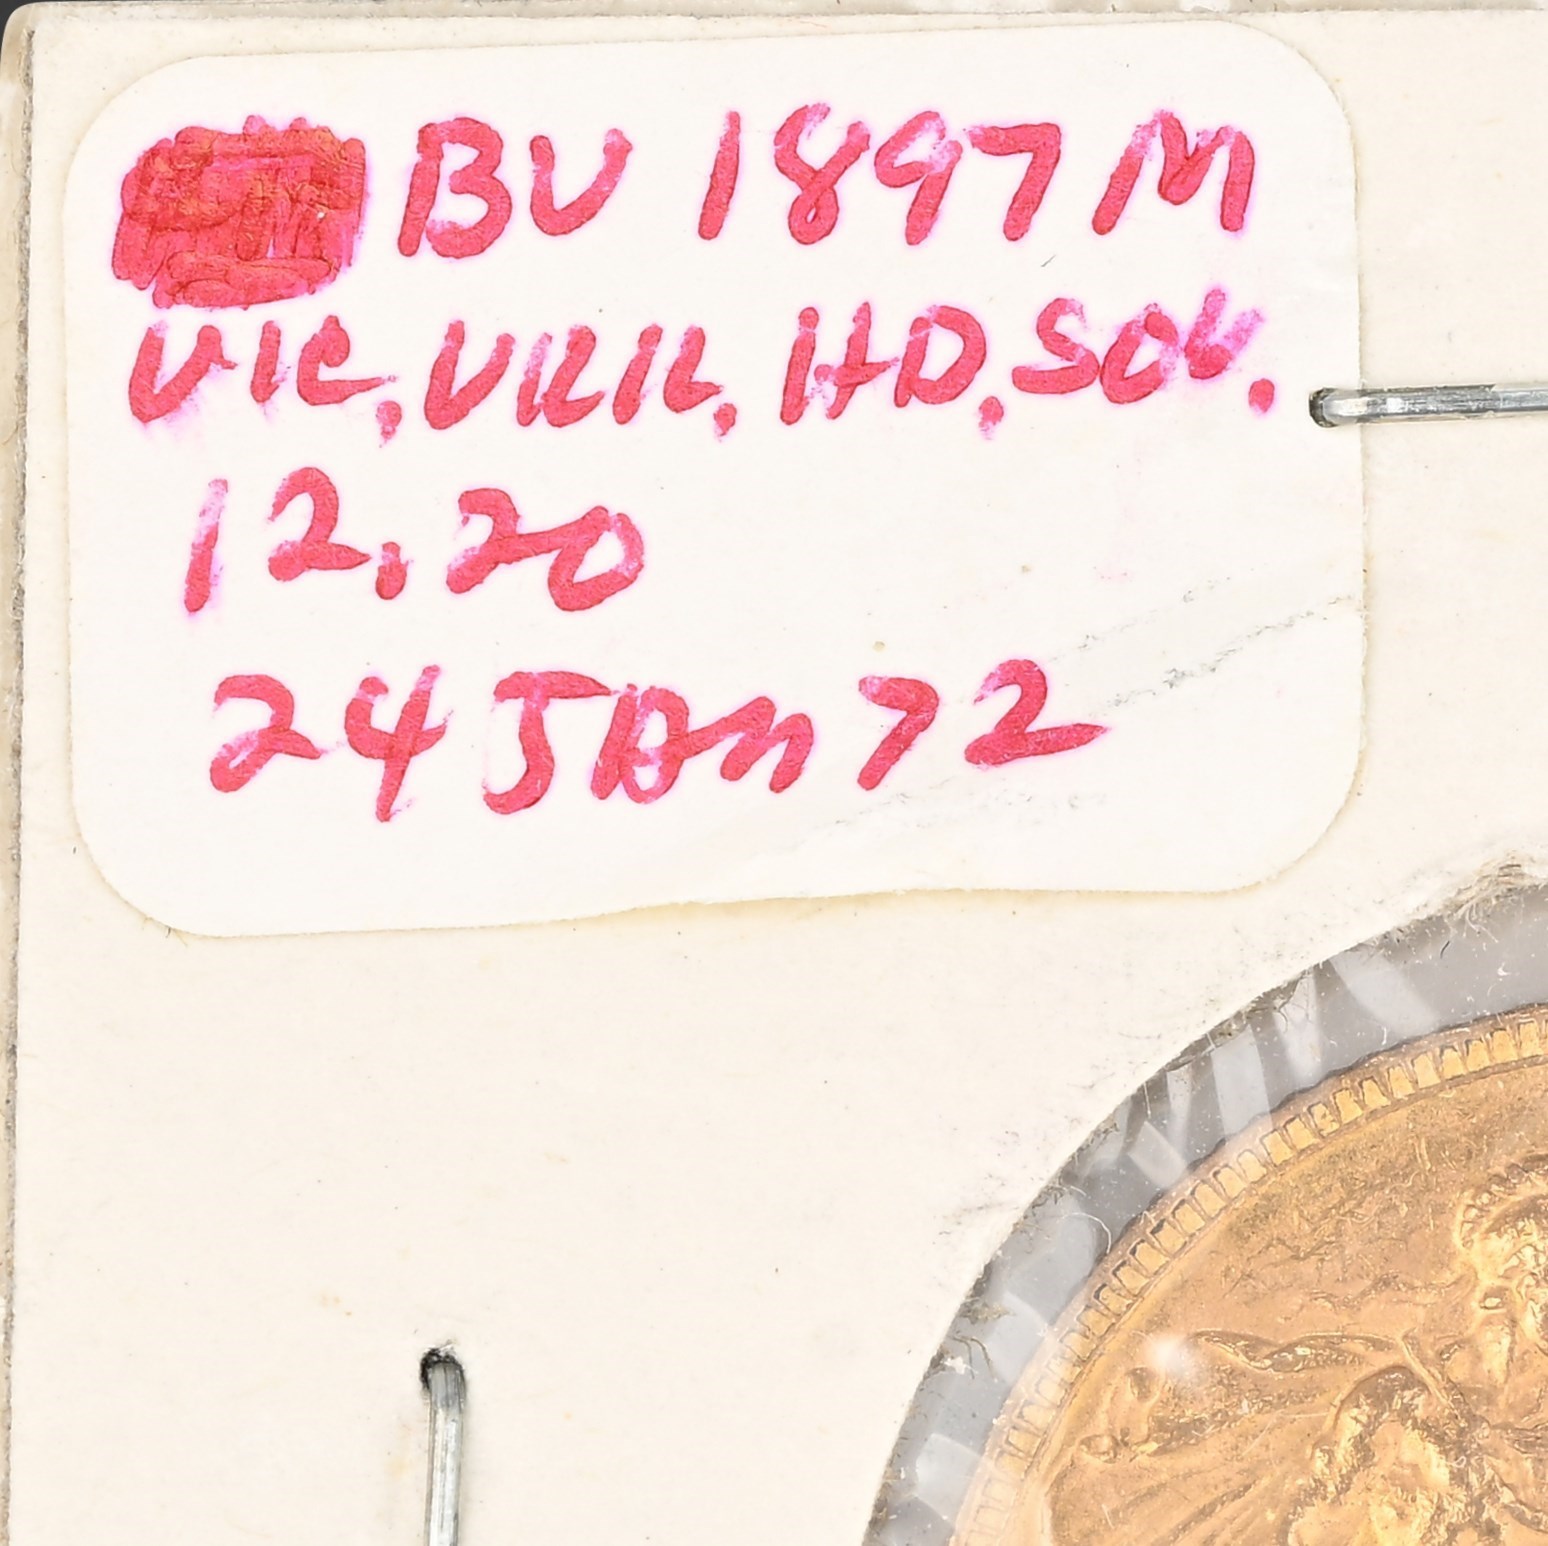 BU 1897 M
VIC. VEIL. HD. SOV.
12.20
24 JAN 72